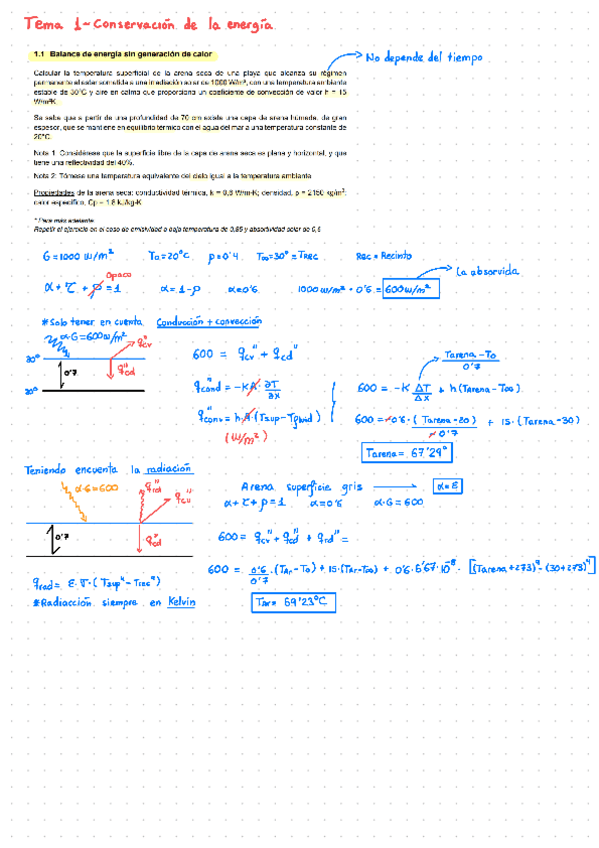 Tema 1- Conservación de la energía
1.1 Balance de energía sin generación de calor
No depende del tiempo
Calcular la temperatura superficial de la arena seca de una playa que alcanza su régimen
permanente al estar sometida a una irradiación solar de 1000 W/m², con una temperatura ambiente
estable de 30°C y aire en calma que proporciona un coeficiente de convección de valor h = 15
W/m²K.
Se sabe que a partir de una profundidad de 70 cm existe una capa de arena húmeda, de gran
espesor, que se mantiene en equilibrio térmico con el agua del mar a una temperatura constante de
20°C.
Nota 1: Considérese que la superficie libre de la capa de arena seca es plana y horizontal, y que
tiene una reflectividad del 40%.
Nota 2: Tómese una temperatura equivalente del cielo igual a la temperatura ambiente
Propiedades de la arena seca: conductividad térmica, k = 0,6 W/m·K; densidad, ρ = 2150 kg/m³;
calor específico, Cp = 1.8 kJ/kg·K
* Para más adelante
Repetir el ejercicio en el caso de emisividad a baja temperatura de 0,85 y absortividad solar de 0,6
G=1000 W/m² To=20°C ρ=0'4 T∞=30°=TREC REC = Recinto
Opaco
La absorvida
α + τ + ρ = 1 α=1-ρ α=0'6 1000 W/m² · 0'6 = 600 W/m²
*Solo tener en cuenta Conducción + convección
α·G=600 W/m²
q"cv
30°
0'7
q"cd
20°
600 = q"cv + q"cd
q"cond = -KA · ∂T/∂x
q"conv = h·A·(Tsup-Tfluid)
(W/m²)
Tarena-To / 0'7
600 = -K ΔT/Δx + h(Tarena-T∞)
600 = -0'6·(Tarena-20)/-0'7 + 15·(Tarena-30)
Tarena = 67'29°
Teniendo encuenta la radiación
α·G=600
q"rd
q"cv
0'7
q"cd
Arena superficie gris → α=ε
α+τ+ρ=1 α=0'6 α·G=600
600 = q"cv + q"cd + q"rd =
600 = 0'6/0'7 ·(TAr-To) + 15·(TAr-T∞) + 0'6·5'67·10⁻⁸ · [(Tarena+273)⁴-(30+273)⁴]
qrad = ε·σ·(Tsup⁴-Trec⁴)
*Radiacción siempre en Kelvin
TAr= 69'23°C